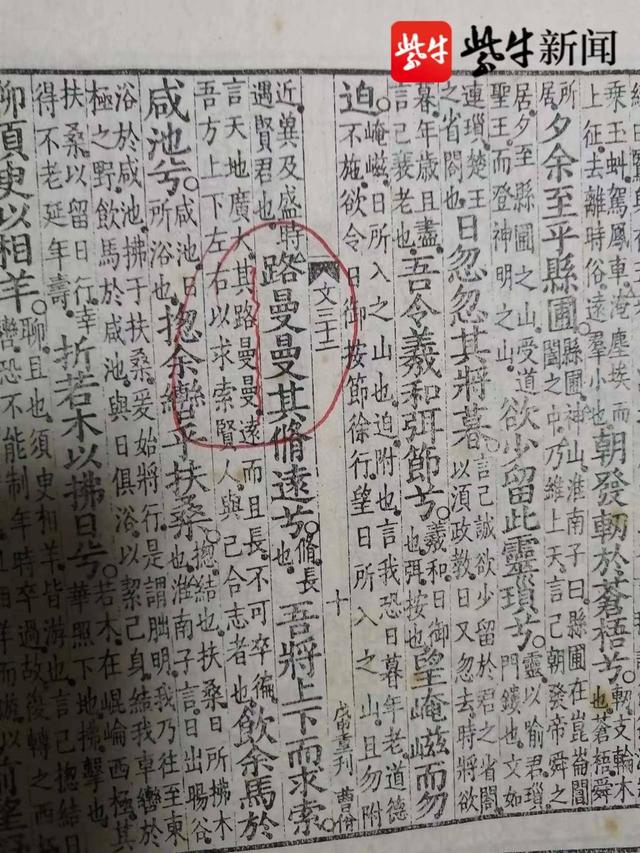 紫牛 紫牛新闻
乘玉虬駕鳳車掩塵埃而
上征去離時俗遠羣小也
朝發軔於蒼梧兮
軔支輪木
也蒼梧舜
所
居
夕余至乎縣圃
縣圃神山淮南子曰縣圃在崑崙閶
闔之中乃維上天言己朝發帝舜之
居夕至縣圃之山受道
聖王而登神明之山
欲少留此靈瑣兮
靈以喻君瑣
門鏤也文如
連瑣楚王
之省閣也
日忽忽其將暮
言己誠欲少留於君之省閣
以須政教日又忽去時將欲
暮年歲且盡
言己衰老也
吾令羲和弭節兮
羲和日御
也弭按也
望崦嵫而勿
迫
崦嵫日所入之山也迫附也言我恐日暮年老道德
不施欲令日御按節徐行望日所入之山且勿附
文三十二
十
重刊
近冀及盛時
遇賢君也
路曼曼其脩遠兮
脩長
也
吾將上下而求索
言天地廣大其路曼曼遠而且長不可卒徧
吾方上下左右以求索賢人與己合志者也
飲余馬於
咸池兮
咸池日
所浴也
揔余轡乎扶桑
揔結也扶桑日所拂木
也淮南子言日出暘谷
浴於咸池拂于扶桑爰始將行是謂朏明我乃往至東
極之野飲馬於咸池與日俱浴以潔己身結我車轡於
扶桑以留日行幸
得不老延年壽
折若木以拂日兮
若木在崐崘西極其
華照下地拂擊也
聊須臾以相羊
聊且也須臾相羊皆游也言己揔結日
轡恐不能制年時卒過故復轉之西